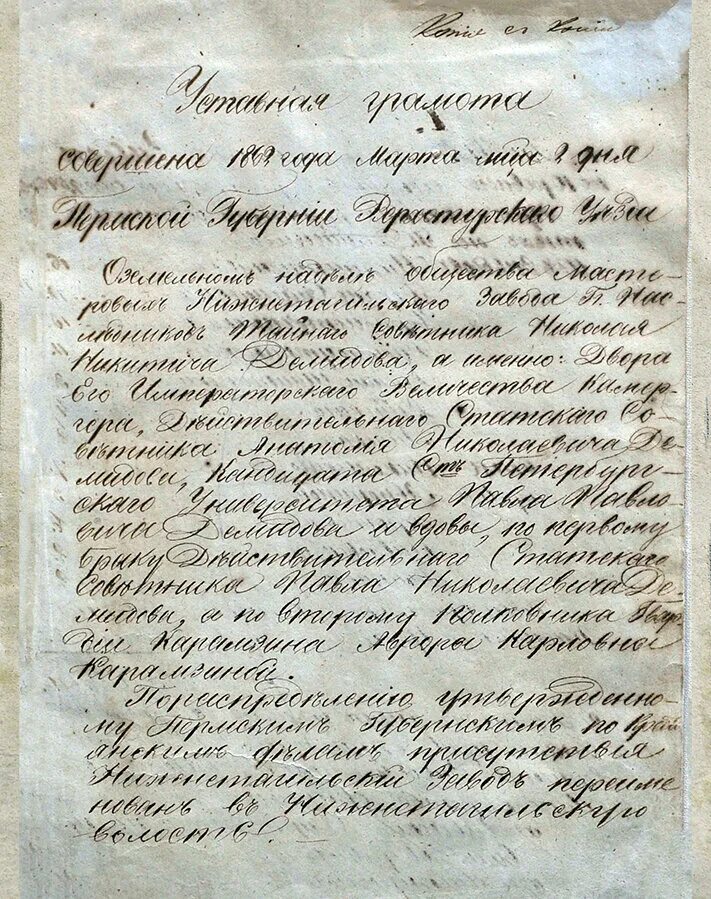 Копія съ Копіи
Уставная грамота
совершена 1862 года Марта м͠ца 2 дня
Пермской Губерніи Верхотурскаго Уѣзда
О земельномъ надѣлѣ общества Масте-
ровыхъ Нижнетагильскаго Завода Гг. Нас-
лѣдниковъ Тайнаго Совѣтника Николая
Никитича Демидова, а именно: Двора
Его Императорскаго Величества Камер-
гера, Дѣйствительнаго Статскаго Со-
вѣтника Анатолія Николаевича Де-
мидова, Кандидата Стъ Петербург-
скаго Университета Павла Павло-
вича Демидова и вдовы, по первому
браку Дѣйствительнаго Статскаго
Совѣтника Павла Николаевича Де-
мидова, а по второму Полковника Гвар-
діи Карамзина Авроры Карловны
Карамзиной.
По распредѣленію утвержденно-
му Пермскимъ Губернскимъ по Крестья
янскимъ дѣламъ присутствія
Нижнетагильскій Заводъ переиме
нованъ въ Нижнетагильскую
волость.